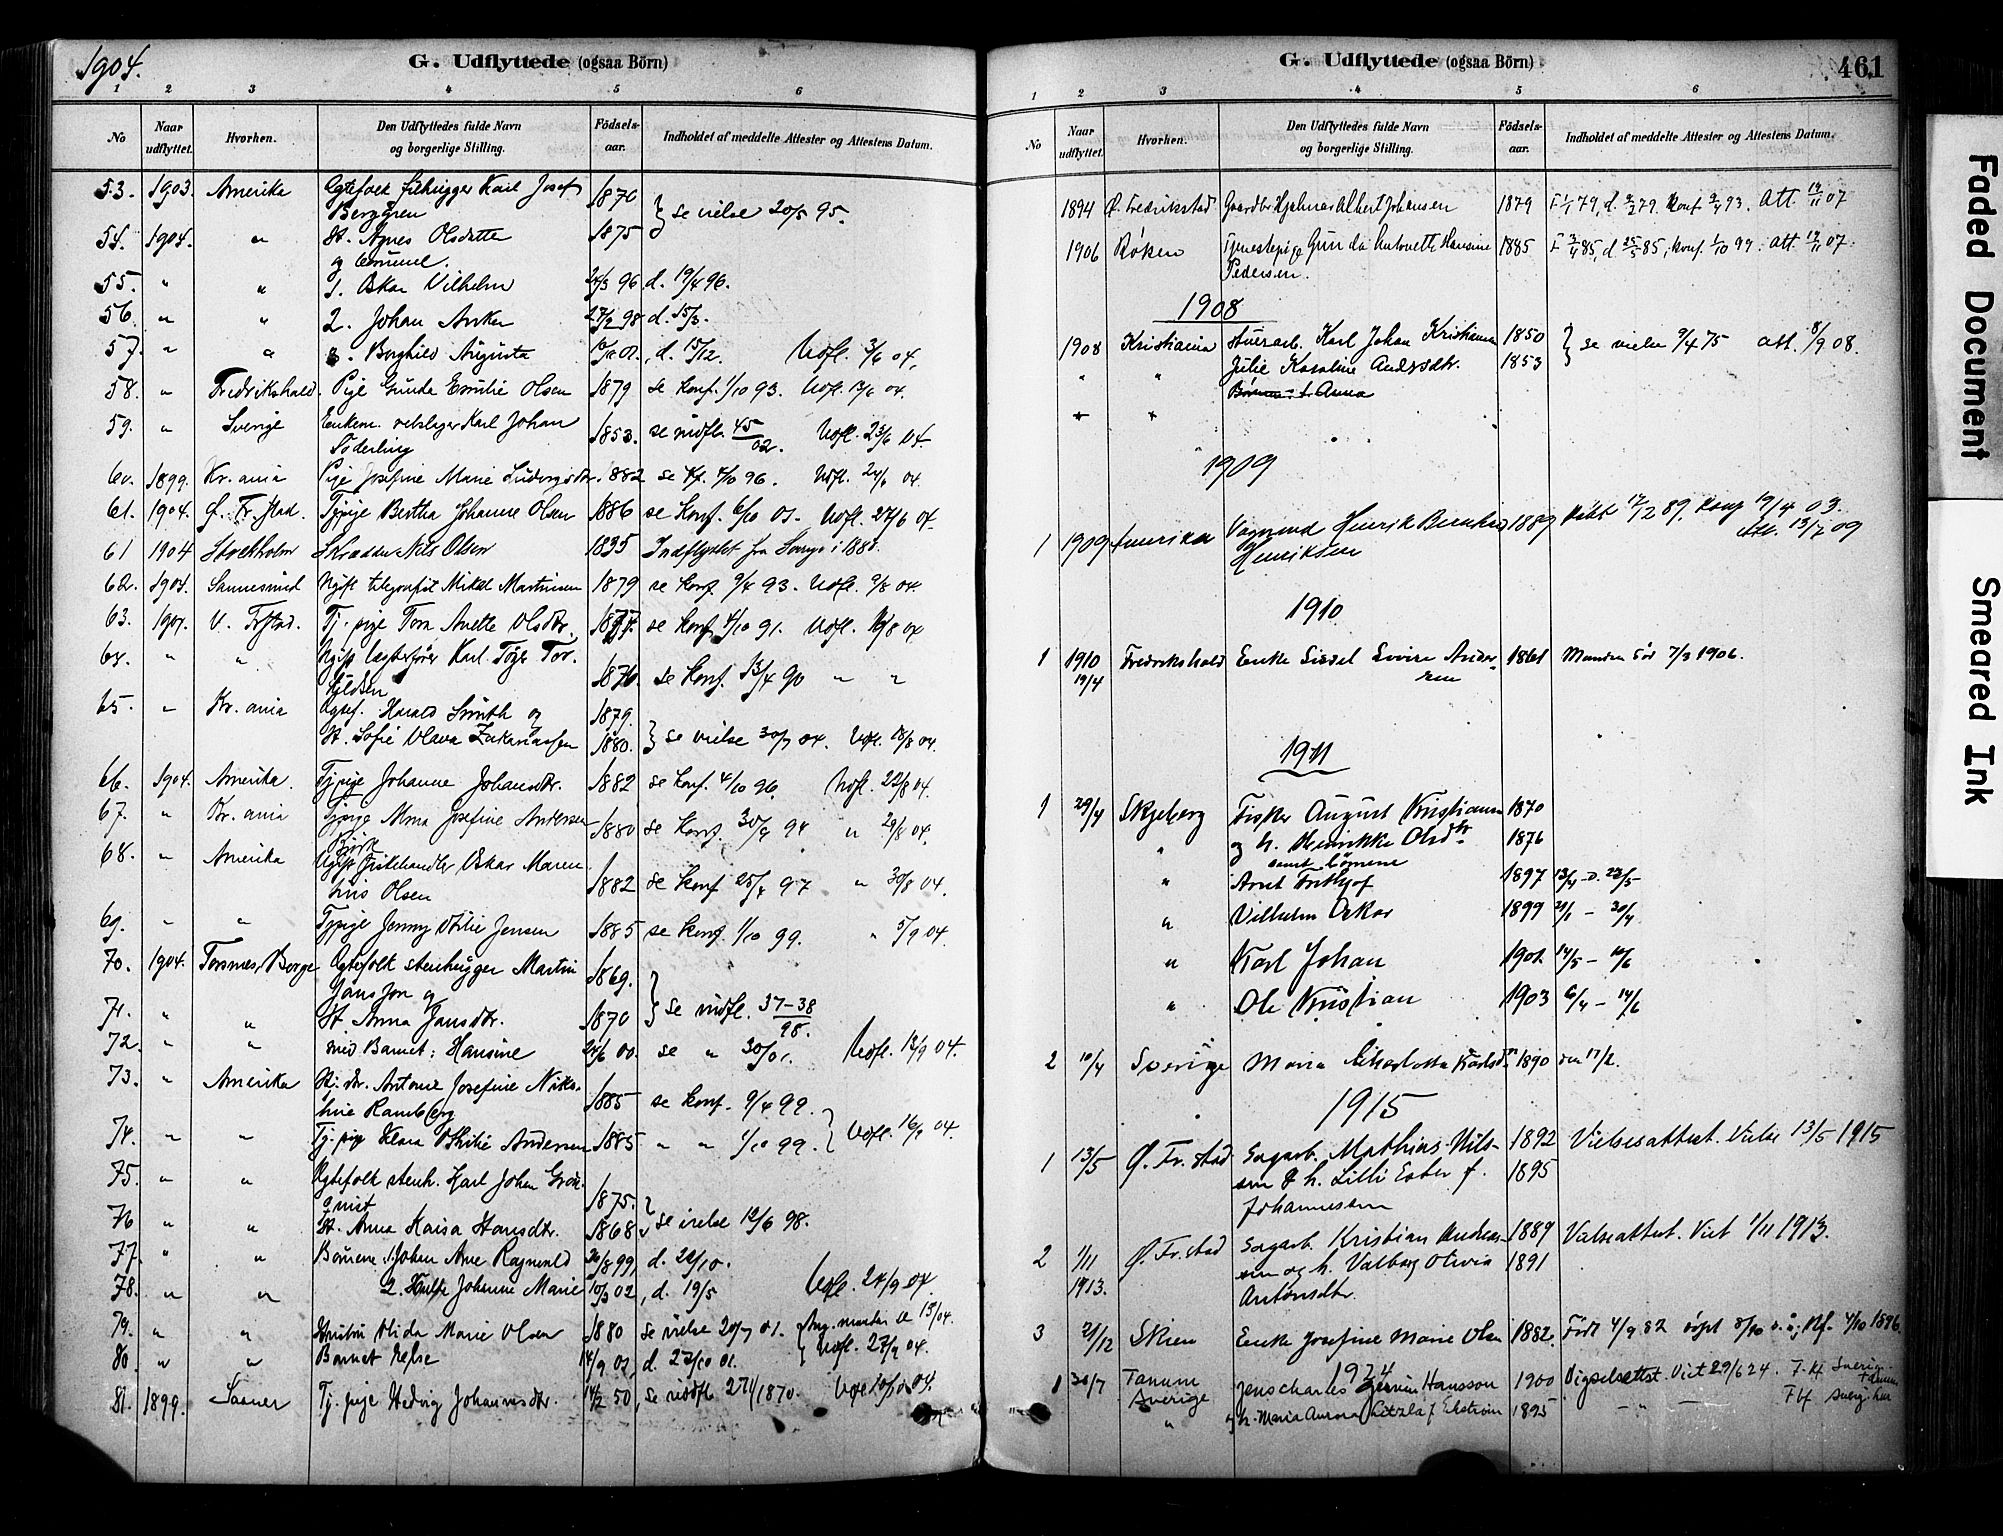 1904.
G. Udflyttede (ogsaa Börn)
1 2 3 4 5 6
No Naar udflyttet. Hvorhen. Den Udflyttedes fulde Navn og borgerlige Stilling. Födsels-aar. Indholdet af meddelte Attester og Attestens Datum.
53. 1903. Amerika Egtefolk stenhugger Karl Josef 1870
Berggren } se vielse 20/5 95.
54. 1904. " H. Agnes Olsdatter 1875
og
55. " " 1. Oskar Vilhelm 24/3 96 d. 19/4 96.
56. " " 2. Johan Anker 27/2 98 d. 15/3.
57. " " 3. Borghild Augusta 01, d. 15/12. Udfl. 3/6 04.
58. " Fredrikshald. Pige Gunda Emilie Olsen 1879 se konf. 1/10 93. Udfl. 13/6 04.
59. " Sverige Enkem. Karl Johan 1853. se indfl. 45/02. Udfl. 23/6 04.
Söderling
60. 1899. Kr.ania Pige Josefine Marie Ludvigsdtr. 1882 se Kf. 4/10 96. Udfl. 24/6 04.
61. 1904. Ø. Fr.stad. Tjpige Bertha Johanne Olsen 1886 se Konf. 6/10 01. Udfl. 27/6 04.
61 1904 Stockholm Skrædder Nils Olsen 1835 Indflyttet fra Sverige i 188
62. 1904. Sannesund Ugift telegrafist Mikal Martinsen 1879 se konf. 9/4 93. Udfl. 9/8 04.
63. 1904. V. Frstad. Tj.pige Tora Anette Olsdtr. 1877. se konf. 4/10 91. Udfl. 8 04
64. " " Ugift Karl Tor- 1876. se konf. 13/4 90 " "
kildsen
65. " Kr.ania Egtef. Harald Smith og 1879.
H. Sofie Olava Zakariassen 1880. } se vielse 30/7 04. Udfl. 18/8 04.
66. 1904. Amerika. Tjpige Johanne Johansdtr. 1882 se konf. 4/10 96. Udfl. 22/8 04.
67. " Kr.ania Tjpige Alma Josefine Andersen 1880 se konf. 30/9 94 " 29/8 04.
Björk
68. " Amerika Ugift fiskehandler Oskar Maren- 1882 se konf 25/4 97 " 30/8 04.
tius Olsen
69. " " Tjpige Jenny Otilie Jensen 1885 se konf. 1/10 99. " 5/9 04.
70. 1904. Torsnes, Borge Egtefolk stenhugger Martin 1869.
Jansson og } se indfl. 37-38/98.
71. " " H. Anna Jansdtr. 1870
72. " " med Barnet: Hansine 24/6 00. se " 30/01. Udfl. 12/9 04.
73. " Amerika Antonie Josefine Niko- 1885 se konf. 9/4 99.
line Ramberg } Udfl. 16/9 04.
74. " " Tj.pige Klara Othilie Andersen 1885 " " 1/10 99.
75. " " Egtefolk stenh. Karl Johan Grön- 1875.
qvist } se vielse 12/6 98.
76 " " H. Anna Kaisa Hansdtr. 1868
77. " " Børnene 1. Johan Arne Ragnvald 20/8 99, d. 22/10.
78. " " 2. Johanne Marie 10/3 02, d. 19/5 Udfl. 24/9 04.
79. " " Hustru Olida Marie Olsen 1880 se vielse 20/7 01.
80. " " Barnet Else 14/9 01, d. 27/10 01. Udfl. 27/9 04.
81. 1899. Tj. pige Hedvig Johannesdtr. 14/2 50, se indfl. 27/1870. Udfl. 10/10 04.
G. Udflyttede (ogsaa Börn)
461
1 2 3 4 5 6
No Naar udflyttet. Hvorhen. Den Udflyttedes fulde Navn og borgerlige Stilling. Födsels-aar. Indholdet af meddelte Attester og Attestens Datum.
1894 Ø. Fredrikstad Gaardbr Hjalmar Albert Johansen 1879 F 1/1 79, d. 9/2 79. Konf 9/4 93. Att. 19/11 07
1906 Røken Tjenestepige Gunda Antonette Hansine 1885 F 3/4 85, d. 25/5 85, konf. 1/10 99. att. 19/11 07.
Pedersen.
1908
1908 Kristiania Stuerarb. Karl Johan Kristiansen 1850 } se vielse 9/4 75 att. 8/9 08.
" " Julie Karoline Andersdtr. 1853
Børnene: 1. Anna
1909
1 1909 Amerika Vagnmand Henrik Bernhard 1889 Født 17/2 89. Konf 19/4 03.
Henriksen Att. 13/7 09
1910
1 1910 Fredrikshald Enke Sissel Sevine Ander- 1861 Manden död 7/3 1906.
19/4 sen
1911
1 29/4 Skjeberg Fisker August Kristiansen 1870
" og h. Henrikke Olsdtr 1876
samt børnene
" Arnt Frithjof 1897 13/4 - d. 23/5
" Vilhelm Oskar 1899 21/1 - 30/4
" Karl Johan 1901 14/5 - 10/6
" Ole Kristian 1903 6/4 - 14/6
2 10/4 Sverige Maria Charlotta Karlsdtr 1890
1915
1 13/5 Ø. Fr.stad Sagarb. Mathias Nils- 1892 Vielsesattest. Vielse 13/5 1915
sen & h. Lilli Ester f. 1895
Johannessen
2 1/11 Ø. Fr.stad Sagarb. Kristian Andreas- 1889 Vielseattest. Viet 1/11 1913.
1913. sen og h. Valborg Olivia 1891
Antonsdtr.
3 21/12 Skien Enke Josefine Marie Olsen 1882. Født 4/9 82 døpt 8/10 s.å; Kf. 4/10 1896.
1924
1 30/7 Tanum Jens Charles Hansson 1900 Vigselsattest. Viet 29/6 24.
Sverige
" og h. Maria Aurora f. Ekström 1895 " —
Faded Document
Smeared Ink